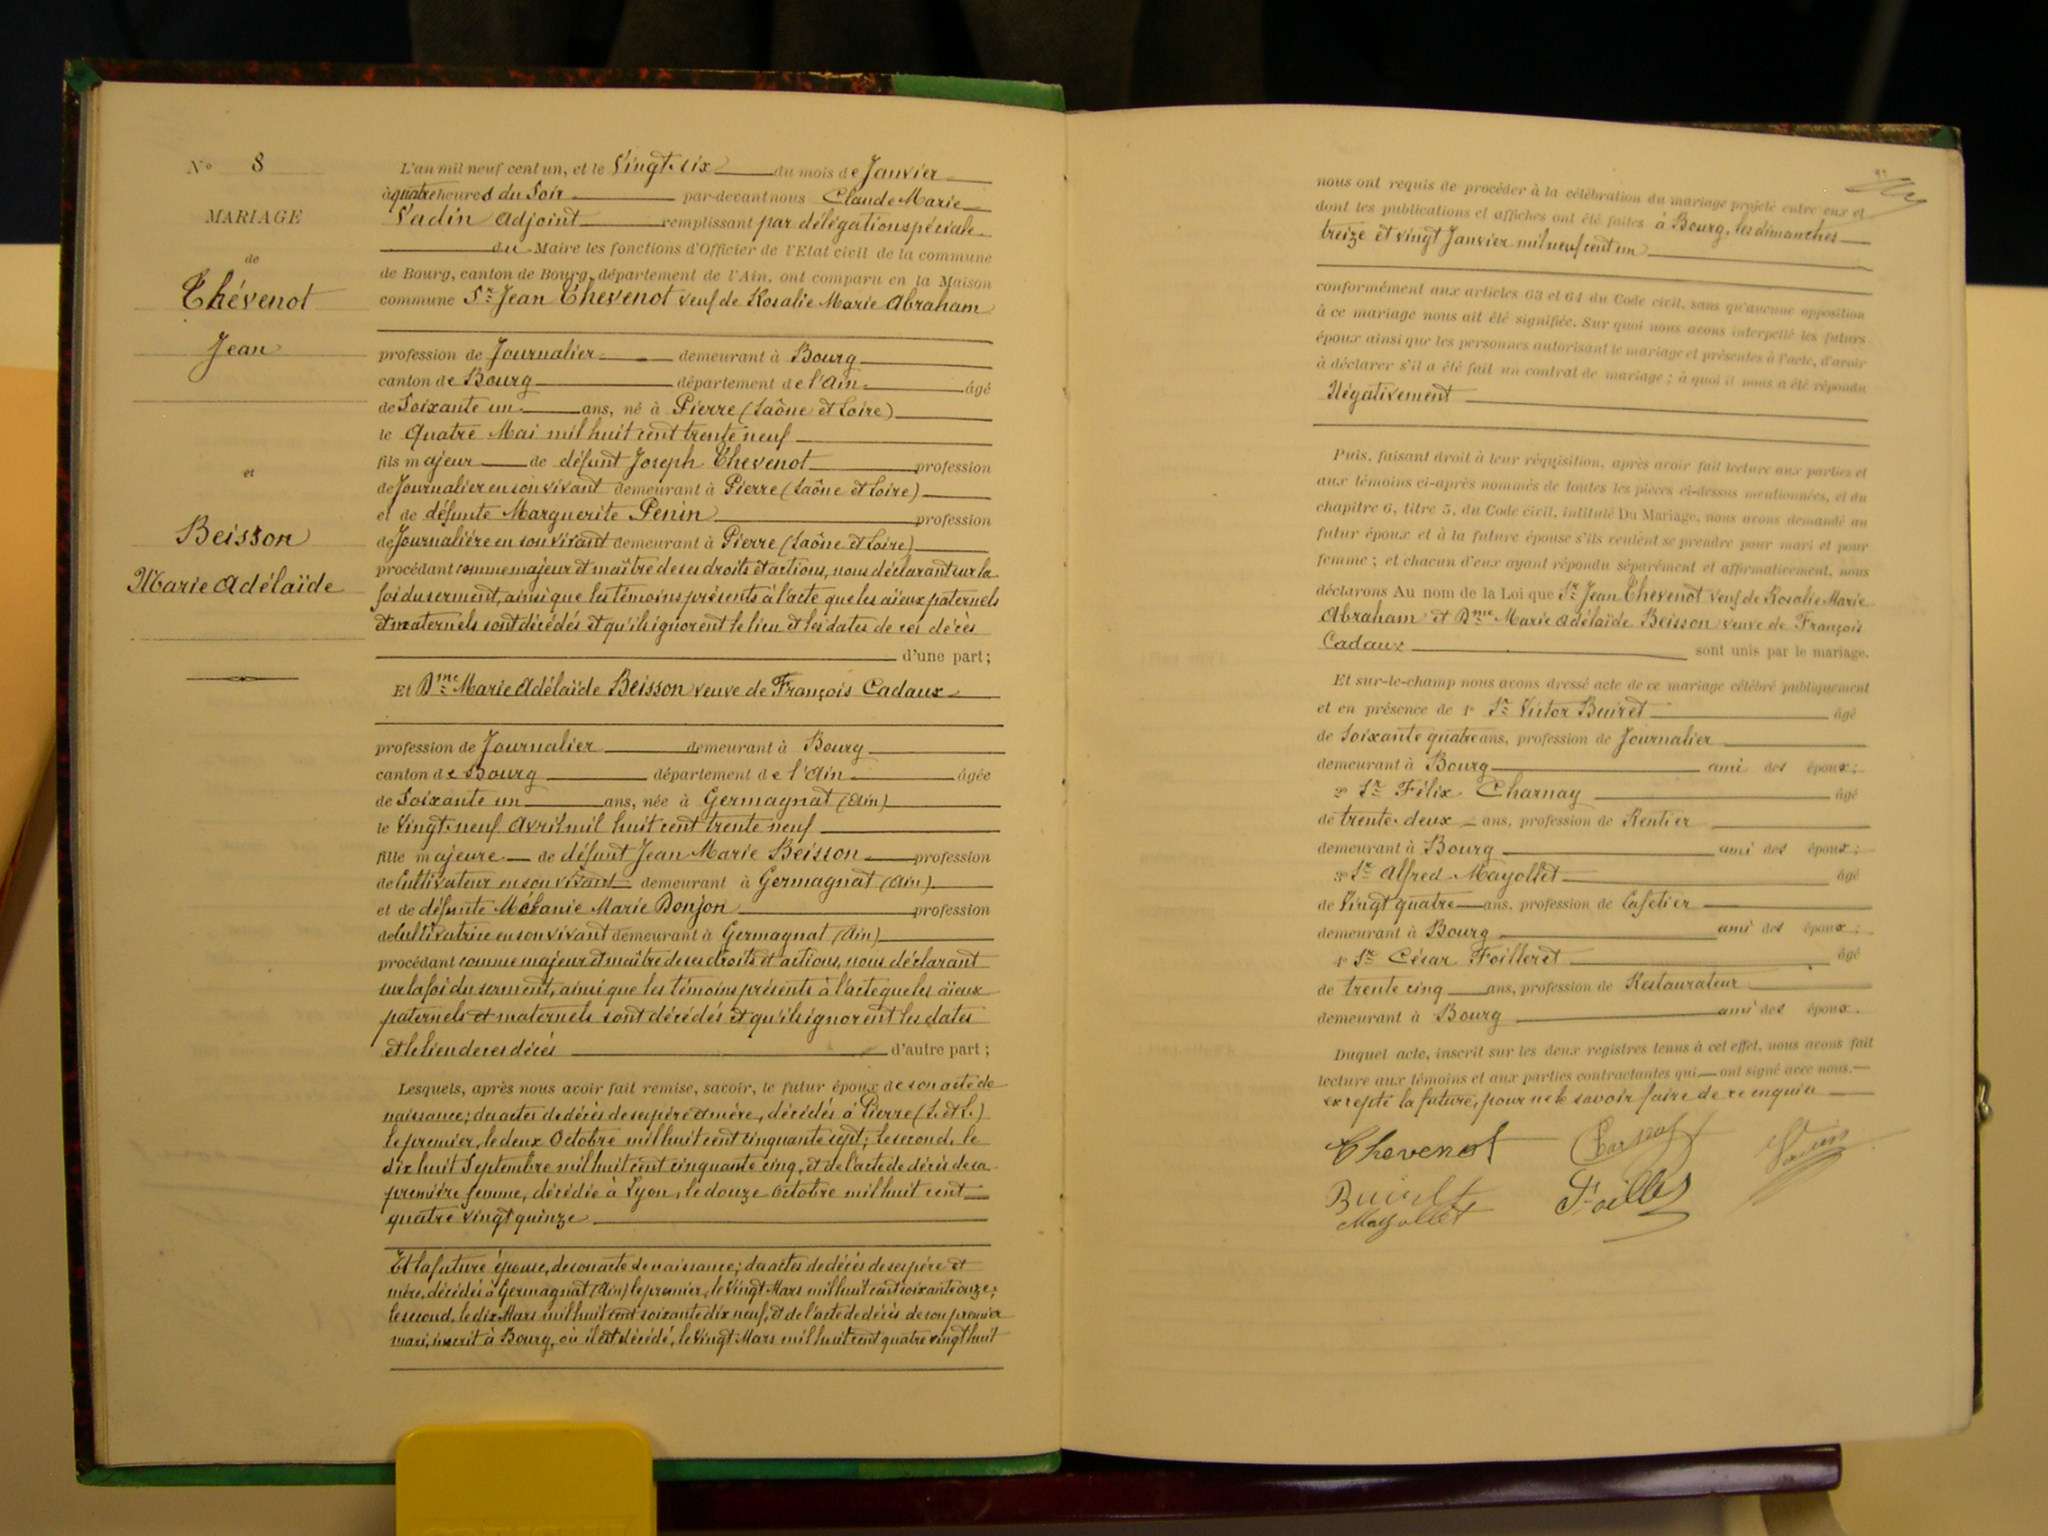 N° 8
MARIAGE
de
Thévenot
Jean
et
Beisson
Marie Adélaïde
L'an mil neuf cent un, et le Vingt-six du mois de Janvier
à quatre heures du Soir par-devant nous Claude Marie
Vadin Adjoint remplissant par délégation spéciale
du Maire les fonctions d'Officier de l'Etat civil de la commune
de Bourg, canton de Bourg, département de l'Ain, ont comparu en la Maison
commune Sr Jean Thévenot veuf de Rosalie Marie Abraham
profession de Journalier demeurant à Bourg
canton de Bourg département de l'Ain âgé
de Soixante un ans, né à Pierre (Saône et Loire)
le Quatre Mai mil huit cent trente neuf
fils majeur de défunt Joseph Thevenot profession
de Journalier en son vivant demeurant à Pierre (Saône et Loire)
et de défunte Marguerite Penin profession
de Journalière en son vivant demeurant à Pierre (Saône et Loire)
procédant comme majeur et maître de ses droits et actions, nous déclarant sur la
foi du serment, ainsi que les témoins présents à l'acte que les aïeux paternels
et maternels sont décédés et qu'ils ignorent le lieu et les dates de ces décès
d'une part;
Et Dme Marie Adélaïde Beisson veuve de François Cadaux
profession de Journalier demeurant à Bourg
canton de Bourg département de l'Ain âgée
de Soixante un ans, née à Germagnat (Ain)
le Vingt-neuf Avril mil huit cent trente neuf
fille majeure de défunt Jean Marie Beisson profession
de Cultivateur en son vivant demeurant à Germagnat (Ain)
et de défunte Mélanie Marie Donjon profession
de Cultivatrice en son vivant demeurant à Germagnat (Ain)
procédant comme majeur et maître de ses droits et actions, nous déclarant
sur la foi du serment, ainsi que les témoins présents à l'acte que les aïeux
paternels et maternels sont décédés et qu'ils ignorent les dates
et le lieu de ces décès d'autre part;
Lesquels, après nous avoir fait remise, savoir, le futur époux de son acte de
naissance; des actes de décès de ses père et mère, décédés à Pierre (S. et L.)
le premier, le deux Octobre mil huit cent cinquante sept; le second, le
dix huit Septembre mil huit cent cinquante cinq, et de l'acte de décès de sa
première femme, décédée à Lyon, le douze Octobre mil huit cent
quatre vingt quinze
Et la future épouse, de son acte de naissance; des actes de décès de ses père et
mère, décédés à Germagnat (Ain) le premier, le Vingt Mars mil huit cent soixante onze;
le second, le dix Mars mil huit cent soixante dix neuf, et de l'acte de décès de son premier
mari, inscrit à Bourg, où il est décédé, le Vingt Mars mil huit cent quatre vingt huit
nous ont requis de procéder à la célébration du mariage projeté entre eux et
dont les publications et affiches ont été faites à Bourg, les dimanches
treize et vingt Janvier mil neuf cent un
conformément aux articles 63 et 64 du Code civil, sans qu'aucune opposition
à ce mariage nous ait été signifiée. Sur quoi nous avons interpellé les futurs
époux ainsi que les personnes autorisant le mariage et présentes à l'acte, d'avoir
à déclarer s'il a été fait un contrat de mariage; à quoi il nous a été répondu
Négativement
Puis, faisant droit à leur réquisition, après avoir fait lecture aux parties et
aux témoins ci-après nommés de toutes les pièces ci-dessus mentionnées, et du
chapitre 6, titre 5, du Code civil, intitulé Du Mariage, nous avons demandé au
futur époux et à la future épouse s'ils veulent se prendre pour mari et pour
femme; et chacun d'eux ayant répondu séparément et affirmativement, nous
déclarons Au nom de la Loi que Sr Jean Thévenot veuf de Rosalie Marie
Abraham et Dme Marie Adélaïde Beisson veuve de François
Cadaux sont unis par le mariage.
Et sur-le-champ nous avons dressé acte de ce mariage célébré publiquement
et en présence de 1° Sr Victor Buiret âgé
de Soixante quatre ans, profession de Journalier
demeurant à Bourg ami des époux;
2° Sr Félix Charnay âgé
de trente-deux ans, profession de Rentier
demeurant à Bourg ami des époux;
3° Sr Alfred Mayollet âgé
de Vingt quatre ans, profession de Cafetier
demeurant à Bourg ami des époux;
4° Sr César Foilleret âgé
de trente cinq ans, profession de Restaurateur
demeurant à Bourg ami des époux.
Duquel acte, inscrit sur les deux registres tenus à cet effet, nous avons fait
lecture aux témoins et aux parties contractantes qui ont signé avec nous.
excepté la future, pour ne le savoir faire de ce enquise
Thevenot Charnay Vadin
Buiret Foilleret
Mayollet